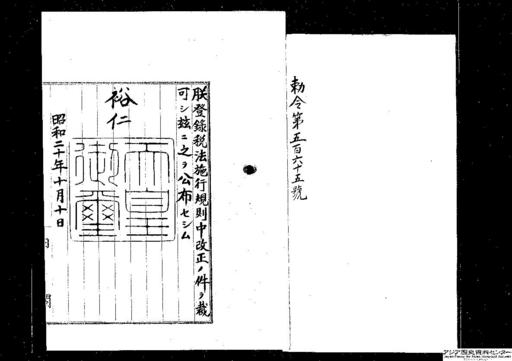 勅令第五百六十五號
朕登錄稅法施行規則中改正ノ件ヲ裁
可シ玆ニ之ヲ公布セシム
裕仁
天皇御璽
昭和二十年十月十日
內閣
アジア歴史資料センター